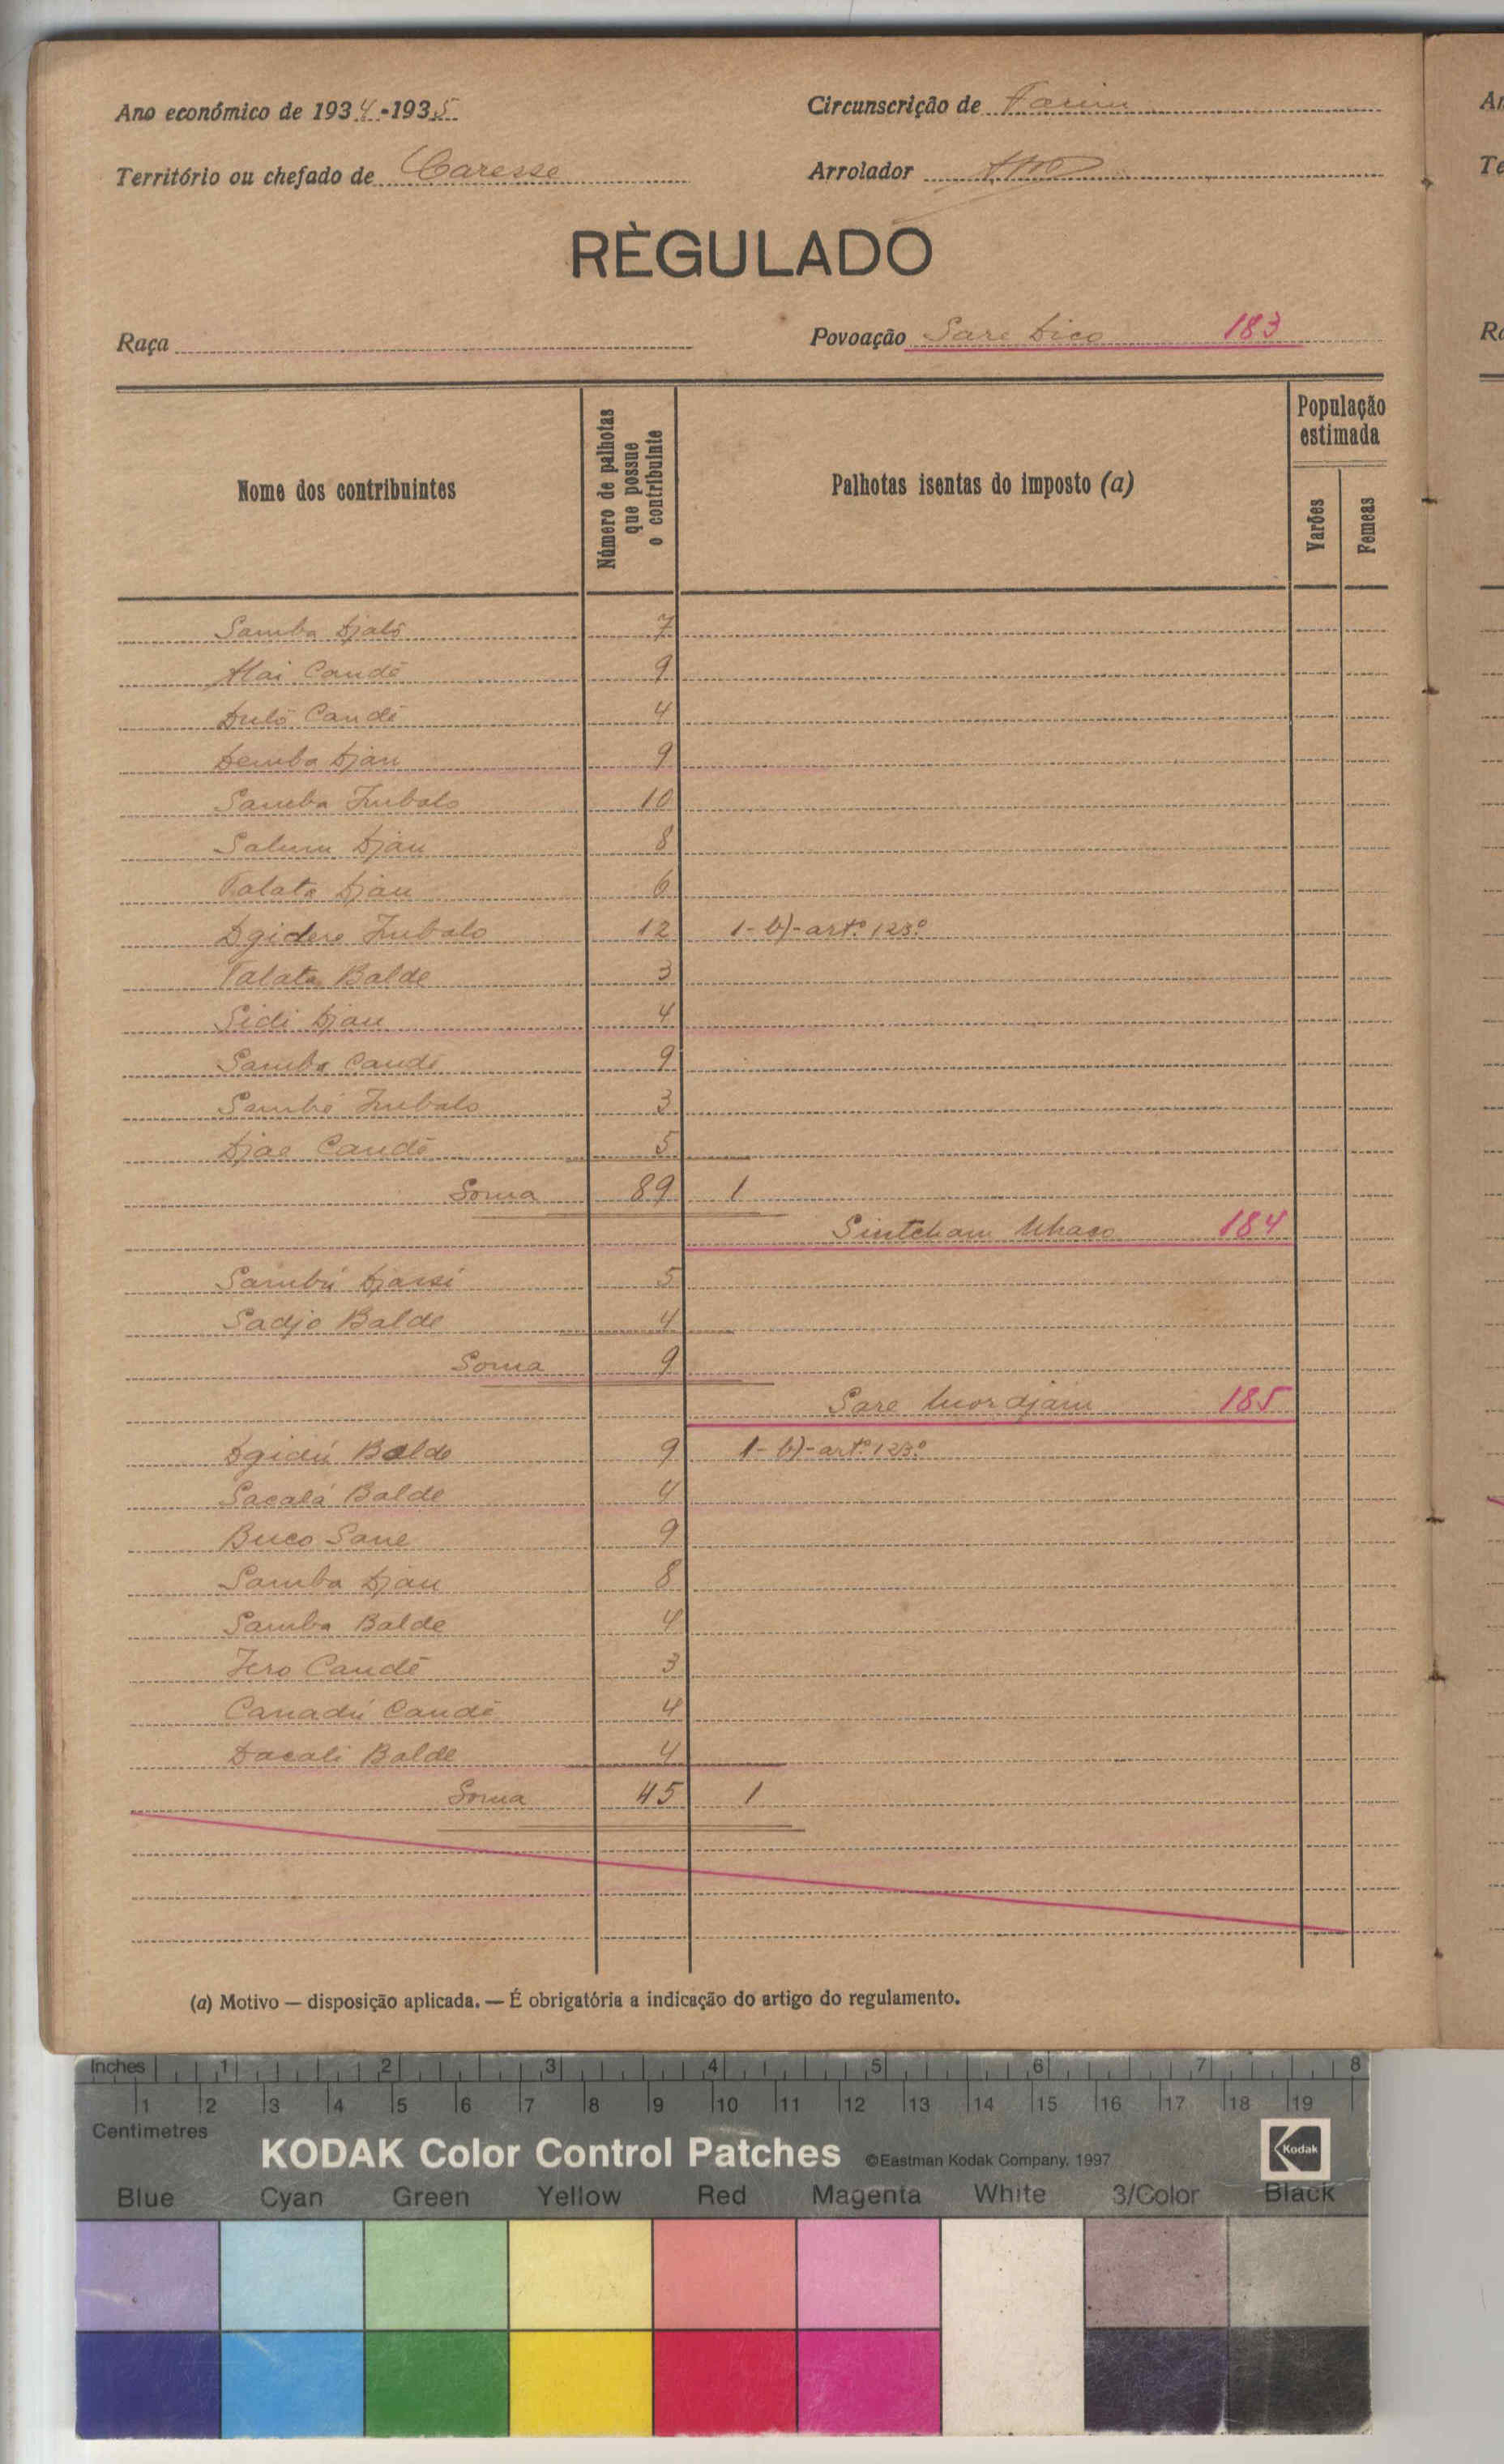 Ano económico de 1934-1935
Circunscrição de Farim
Território ou chefado de Caresse
Arrolador
RÈGULADO
Raça
Povoação Sare Dico 183
Nome dos contribuintes
Número de palhotas que possue o contribuinte
Palhotas isentas do imposto (a)
População estimada
Varões
Femeas
Samba Djaló 7
Alai Candé 9
Duló Candé 4
Demba Djau 9
Samba Jubalo 10
Salum Djau 8
Talata Djau 6
Dgidere Jubalo 12 1-b)-artº 123º
Talata Balde 3
Sidi Djau 4
Samba Candé 9
Sambó Jubalo 3
Djae Candé 5
Soma 89 1
Sintcham 184
Sambú Djassi 5
Sadjo Balde 4
Soma 9
Sare 185
Dgidú Balde 9 1-b)-artº 123º
Sacalá Balde 4
Buco Sane 9
Samba Djau 8
Samba Balde 4
Jero Candé 3
Canadú Candé 4
Dacali Balde 4
Soma 45 1
(a) Motivo — disposição aplicada. — É obrigatória a indicação do artigo do regulamento.
An
Te
Ra
Inches 1 2 3 4 5 6 7 8
1 2 3 4 5 6 7 8 9 10 11 12 13 14 15 16 17 18 19
Centimetres
KODAK Color Control Patches ©Eastman Kodak Company, 1997 Kodak
Blue Cyan Green Yellow Red Magenta White 3/Color Black